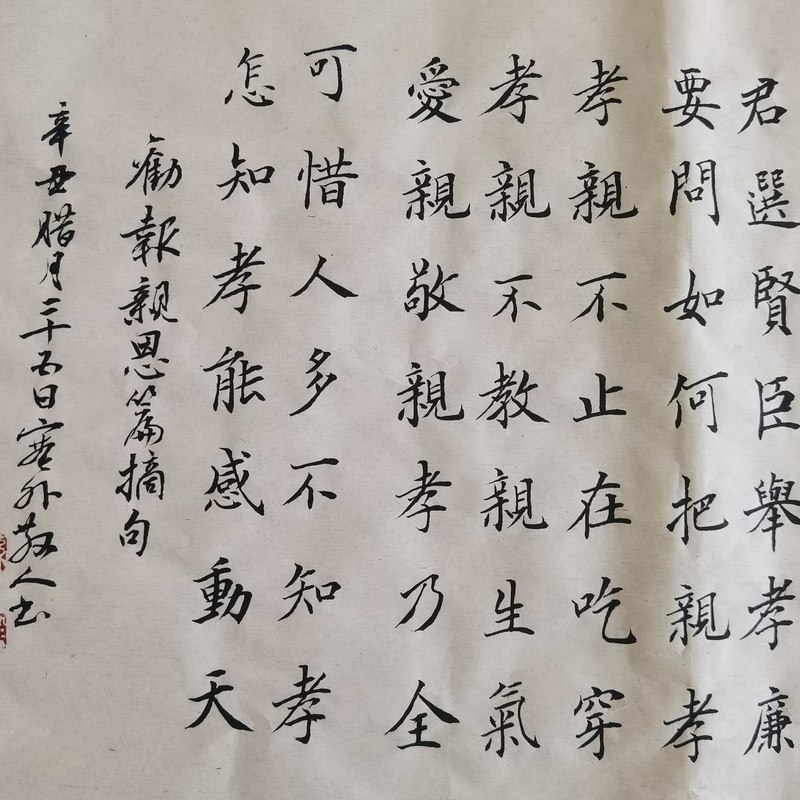 君選賢臣舉孝廉
要問如何把親孝
孝親不止在吃穿
孝親不教親生氣
愛親敬親孝乃全
可惜人多不知孝
怎知孝能感動天
勸報親恩篇摘句
辛丑腊月二十五日塞外散人书